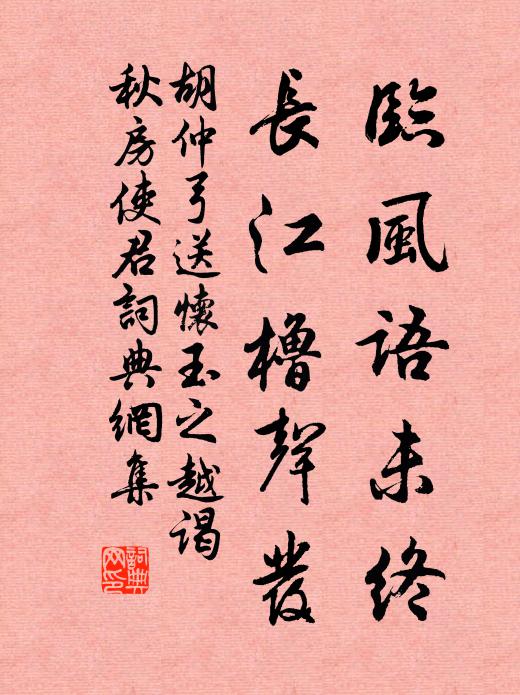 臨風語未終
長江櫓聲發
胡仲弓送懷玉之越謁
秋房使君詞典網集
詞典網印